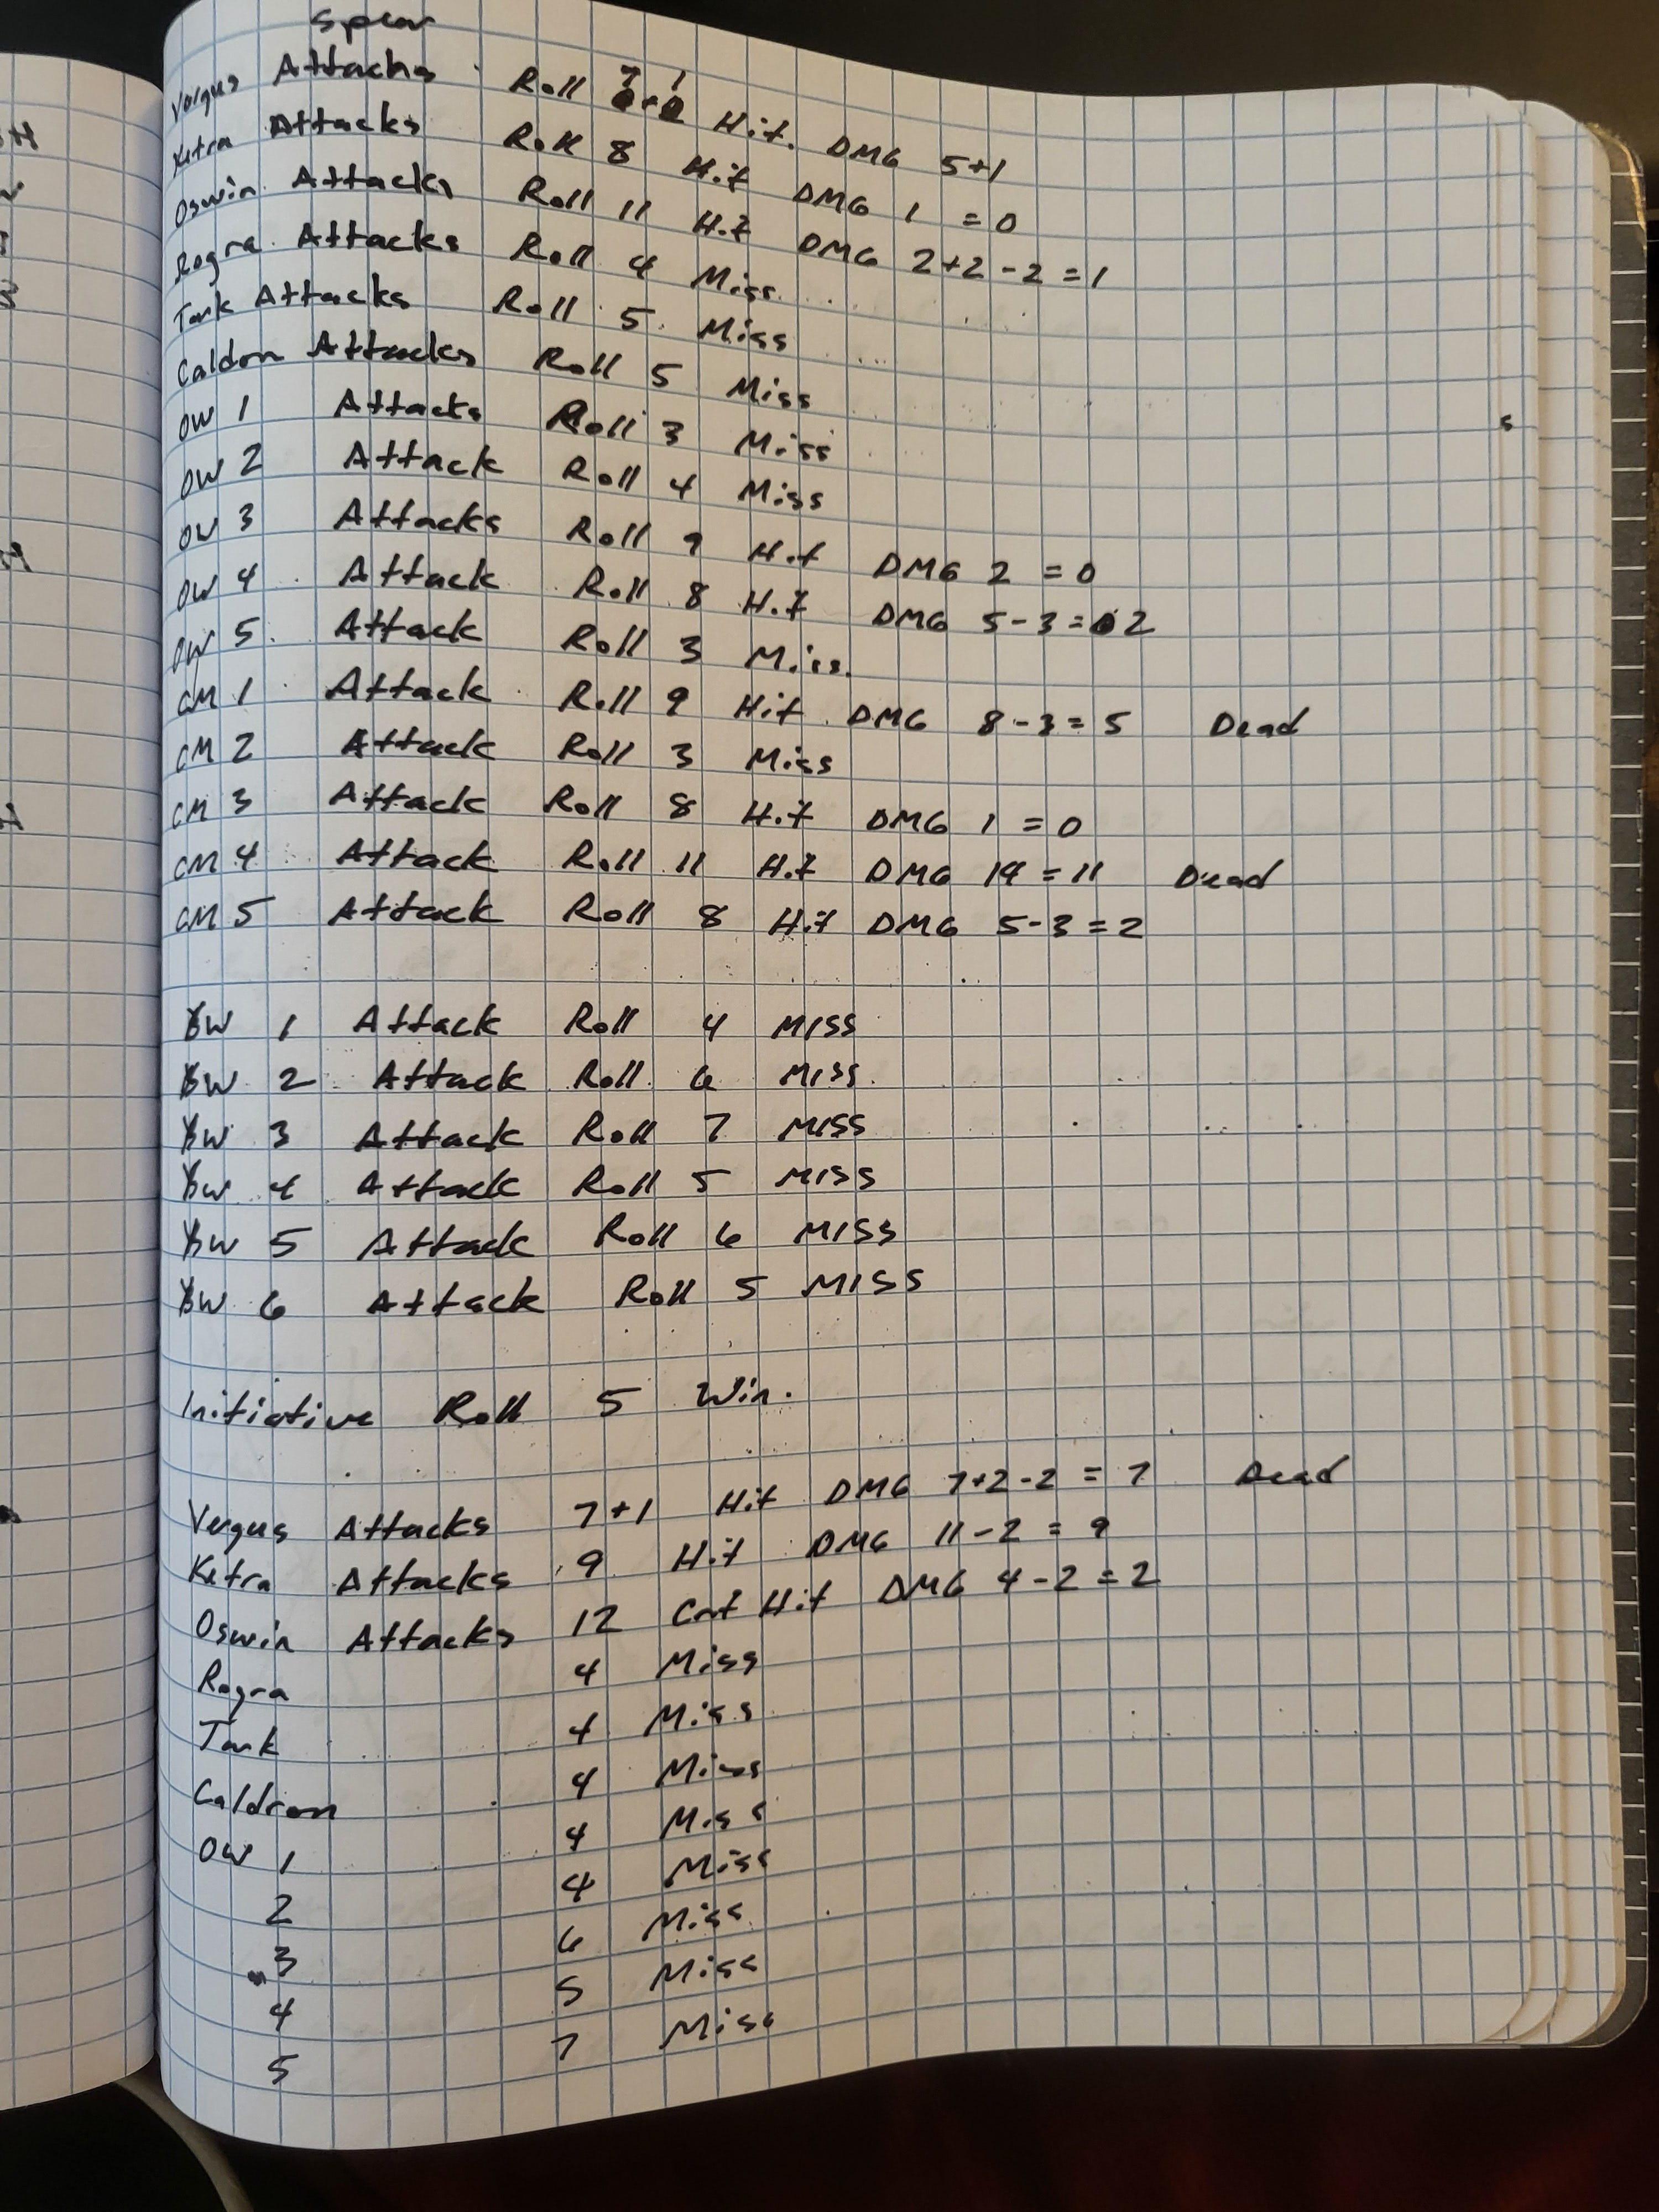 Spear
Vergus Attacks Roll 7+1 Hit. DMG 5+1
Ketra Attacks Roll 8 Hit DMG 1 = 0
Oswin Attacks Roll 11 Hit DMG 2+2-2=1
Rogra Attacks Roll 4 Miss
Tank Attacks Roll 5 Miss
Caldron Attacks Roll 5 Miss
OW 1 Attacks Roll 3 Miss
OW 2 Attack Roll 4 Miss
OW 3 Attacks Roll 9 Hit DMG 2 = 0
OW 4 Attack Roll 8 Hit DMG 5-3=2
OW 5 Attack Roll 3 Miss.
CM 1 Attack Roll 9 Hit DMG 8-3=5 Dead
CM 2 Attack Roll 3 Miss
CM 3 Attack Roll 8 Hit DMG 1 = 0
CM 4 Attack Roll 11 Hit DMG 14 = 11 Dead
CM 5 Attack Roll 8 Hit DMG 5-3=2
BW 1 Attack Roll 4 MISS
BW 2 Attack Roll 6 MISS
BW 3 Attack Roll 7 MISS
BW 4 Attack Roll 5 MISS
BW 5 Attack Roll 6 MISS
BW 6 Attack Roll 5 MISS
Initiative Roll 5 Win.
Vergus Attacks 7+1 Hit DMG 7+2-2 = 7 Dead
Ketra Attacks 9 Hit DMG 11-2 = 9
Oswin Attacks 12 Crit Hit DMG 4-2=2
Rogra 4 Miss
Tank 4 Miss
Caldron 4 Miss
OW 1 4 Miss
2 4 Miss
3 6 Miss
4 5 Miss
5 7 Miss